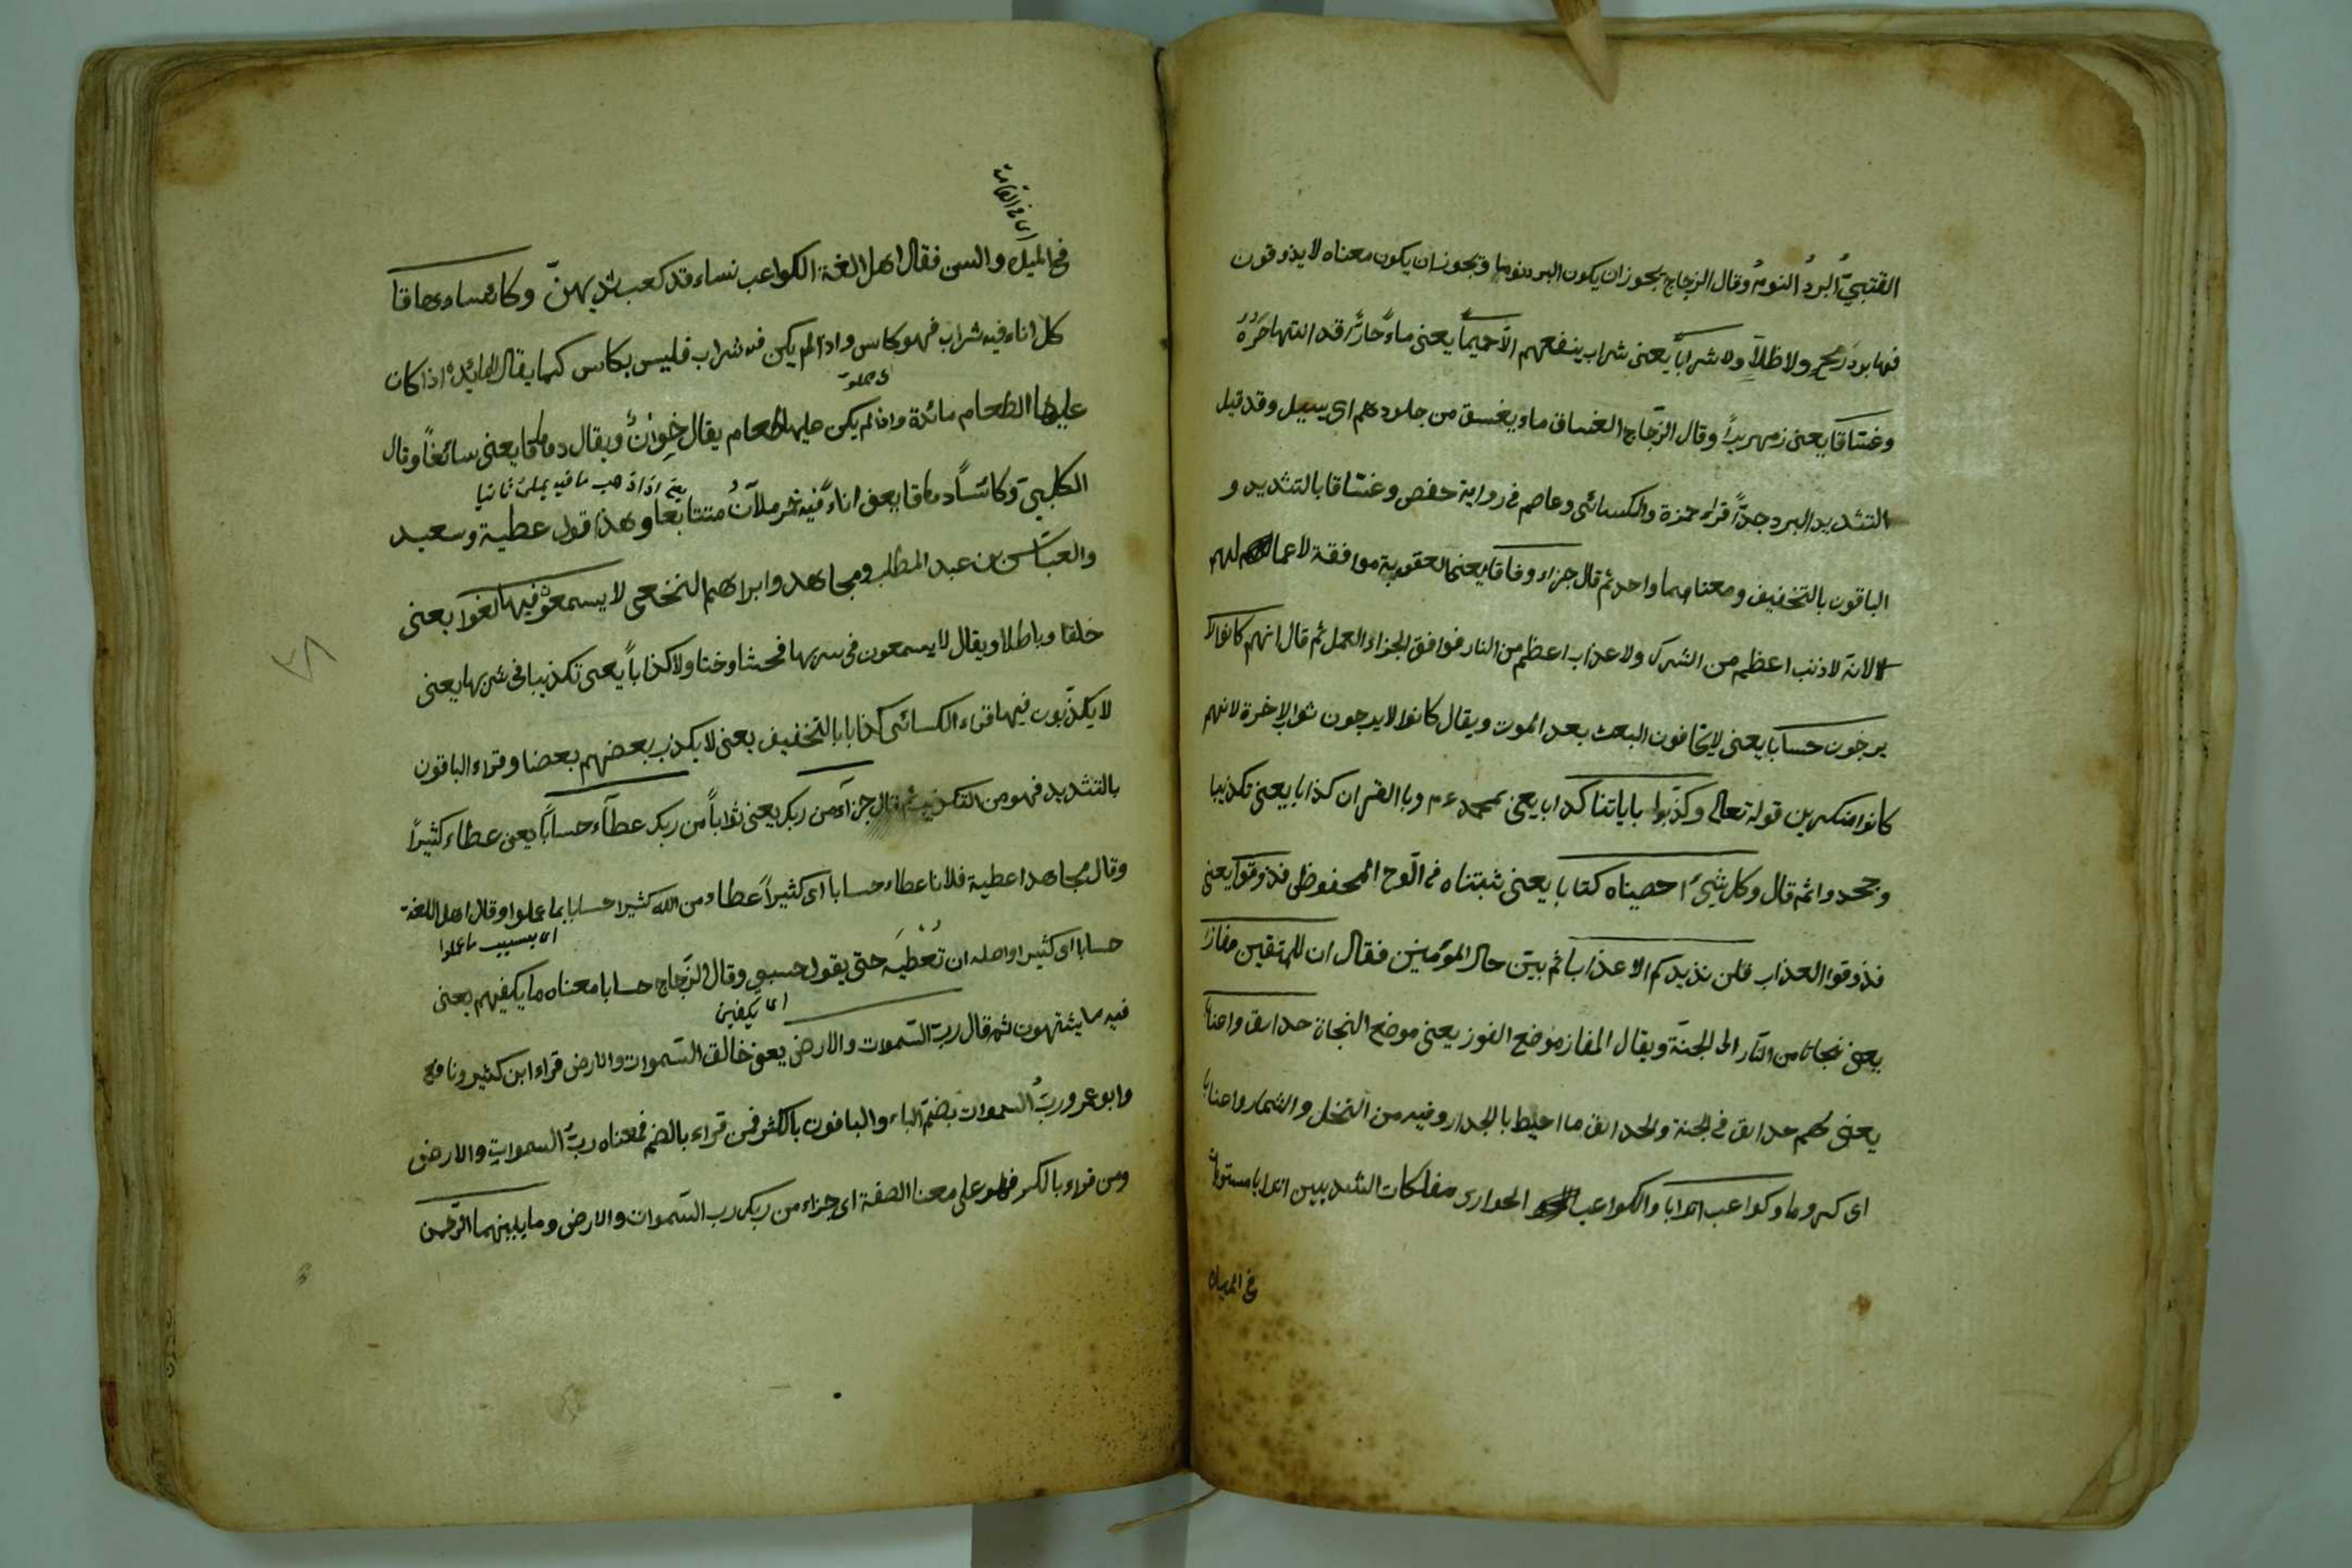 القتبيّ البردُ النومُ وقال الزجاج يجوز ان يكون البرد نوما ويجوز ان يكون معناه لا يذوقون
فيها برد ريح ولا ظلاّ ولا شراباً يعنى شراب ينفعهم الاّ حميماً يعنى ماءً حارّاً قد انتها حَرُّهُ
وغسّاقا يعنى زمهريراً وقال الزّجاج الغساق ماء يغسق من جلودهم اى يسيل وقد قيل
التشديد البرد جدّاً قراء حمزة والكسائى وعاصم فى رواية حفص وغسّاقا بالتشديد و
الباقون بالتخفيف ومعناهما واحد ثم قال جزاء وفاقا يعنى العقوبة موافقة لاعمالهم
لانه لا ذنب اعظم من الشرك ولا عذاب اعظم من النار فوافق الجزاء العمل ثم قال انهم كانوا لا
يرجون حسابا يعنى لا يخافون البعث بعد الموت ويقال كانوا لا يرجون ثواب الاخرة لانهم
كانوا منكرين قوله تعالى وكذّبوا باياتنا كذابا يعنى بمحمد عم وبا القران كذابا يعنى تكذيبا
وجحدوا ثم قال وكل شئ احصيناه كتابا يعنى ثبتناه فى الّوح المحفوظ فذوقوا يعنى
فذوقوا العذاب فلن نزيدكم الا عذابا ثم بيّن حال المؤمنين فقال ان للمتقين مفازا
يعنى نجاتا من النّار الى الجنّة ويقال المفاز موضع الفوز يعنى موضع النجاة حدايق واعنابا
يعنى لهم حدايق فى الجنة والحدايق ما احيط بالجدار وفيه من النخل والثمار واعنابا
اى كروما وكواعب اترابا والكواعب الجوارى مفلكات الثديين اترابا مستويات
فى الميلاد
اى فى القامة
فى الميلاد والسن فقال اهل الغة الكواعب نساء قد كعب ثديهنّ وكاسا دهاقا
كل اناء فيه شراب فهو كاس واذا لم يكن فيه شراب فليس بكاس كما يقال المايدة اذا كان
عليها الطعام مائدة واذا لم يكن عليها طعام يقال خِوانٌ ويقال دهاقا يعنى سائغاً وقال
الكلبىّ وكاسًا دهاقا يعنى اناءً فيه خمر ملآنٌ متتابعا وهذا قول عطية وسعيد
يعنى اذا ذهب ما فيه يملئ ثانيا
والعبّاس بن عبد المطلب ومجاهد وابراهيم النخعى لا يسمعون فيها لغوا يعنى
خلقا وباطلا ويقال لا يسمعون فى شربها فحشا وخنا ولا كذاباً يعنى تكذيبا فى شربها يعنى
لا يكذّبون فيها قراء الكسائى كذابا بالتخفيف يعنى لا يكذب بعضهم بعضا وقراء الباقون
بالتشديد فهو من التكذيب ثم قال جزآء من ربك يعنى ثواباً من ربك عطآء حساباً يعنى عطاء كثيراً
وقال مجاهد اعطية فلانا عطاء حسابا اى كثيراً عطاء من الله كثيرا حسابا بما عملوا وقال اهل اللغة
اى بسبب ما عملوا
حسابا اى كثيرا واصله ان تُعْطيَه حتى يقول حسبى وقال الزّجاج حسابا معناه ما يكفيهم يعنى
اى يكفينى
فيه ما يشتهون ثم قال ربّ السّموات والارض يعنى خالق السّموات والارض قراء ابن كثير ونافع
وابو عمرو ربُّ السموات بضمّ الباء والباقون بالكسر فمن قراء بالضم فمعناه ربُّ السموات والارض
ومن قراء بالكسر فهو على معنا الصفة اى جزاء من ربك رب السّموات والارض وما بينهما الرّحمن